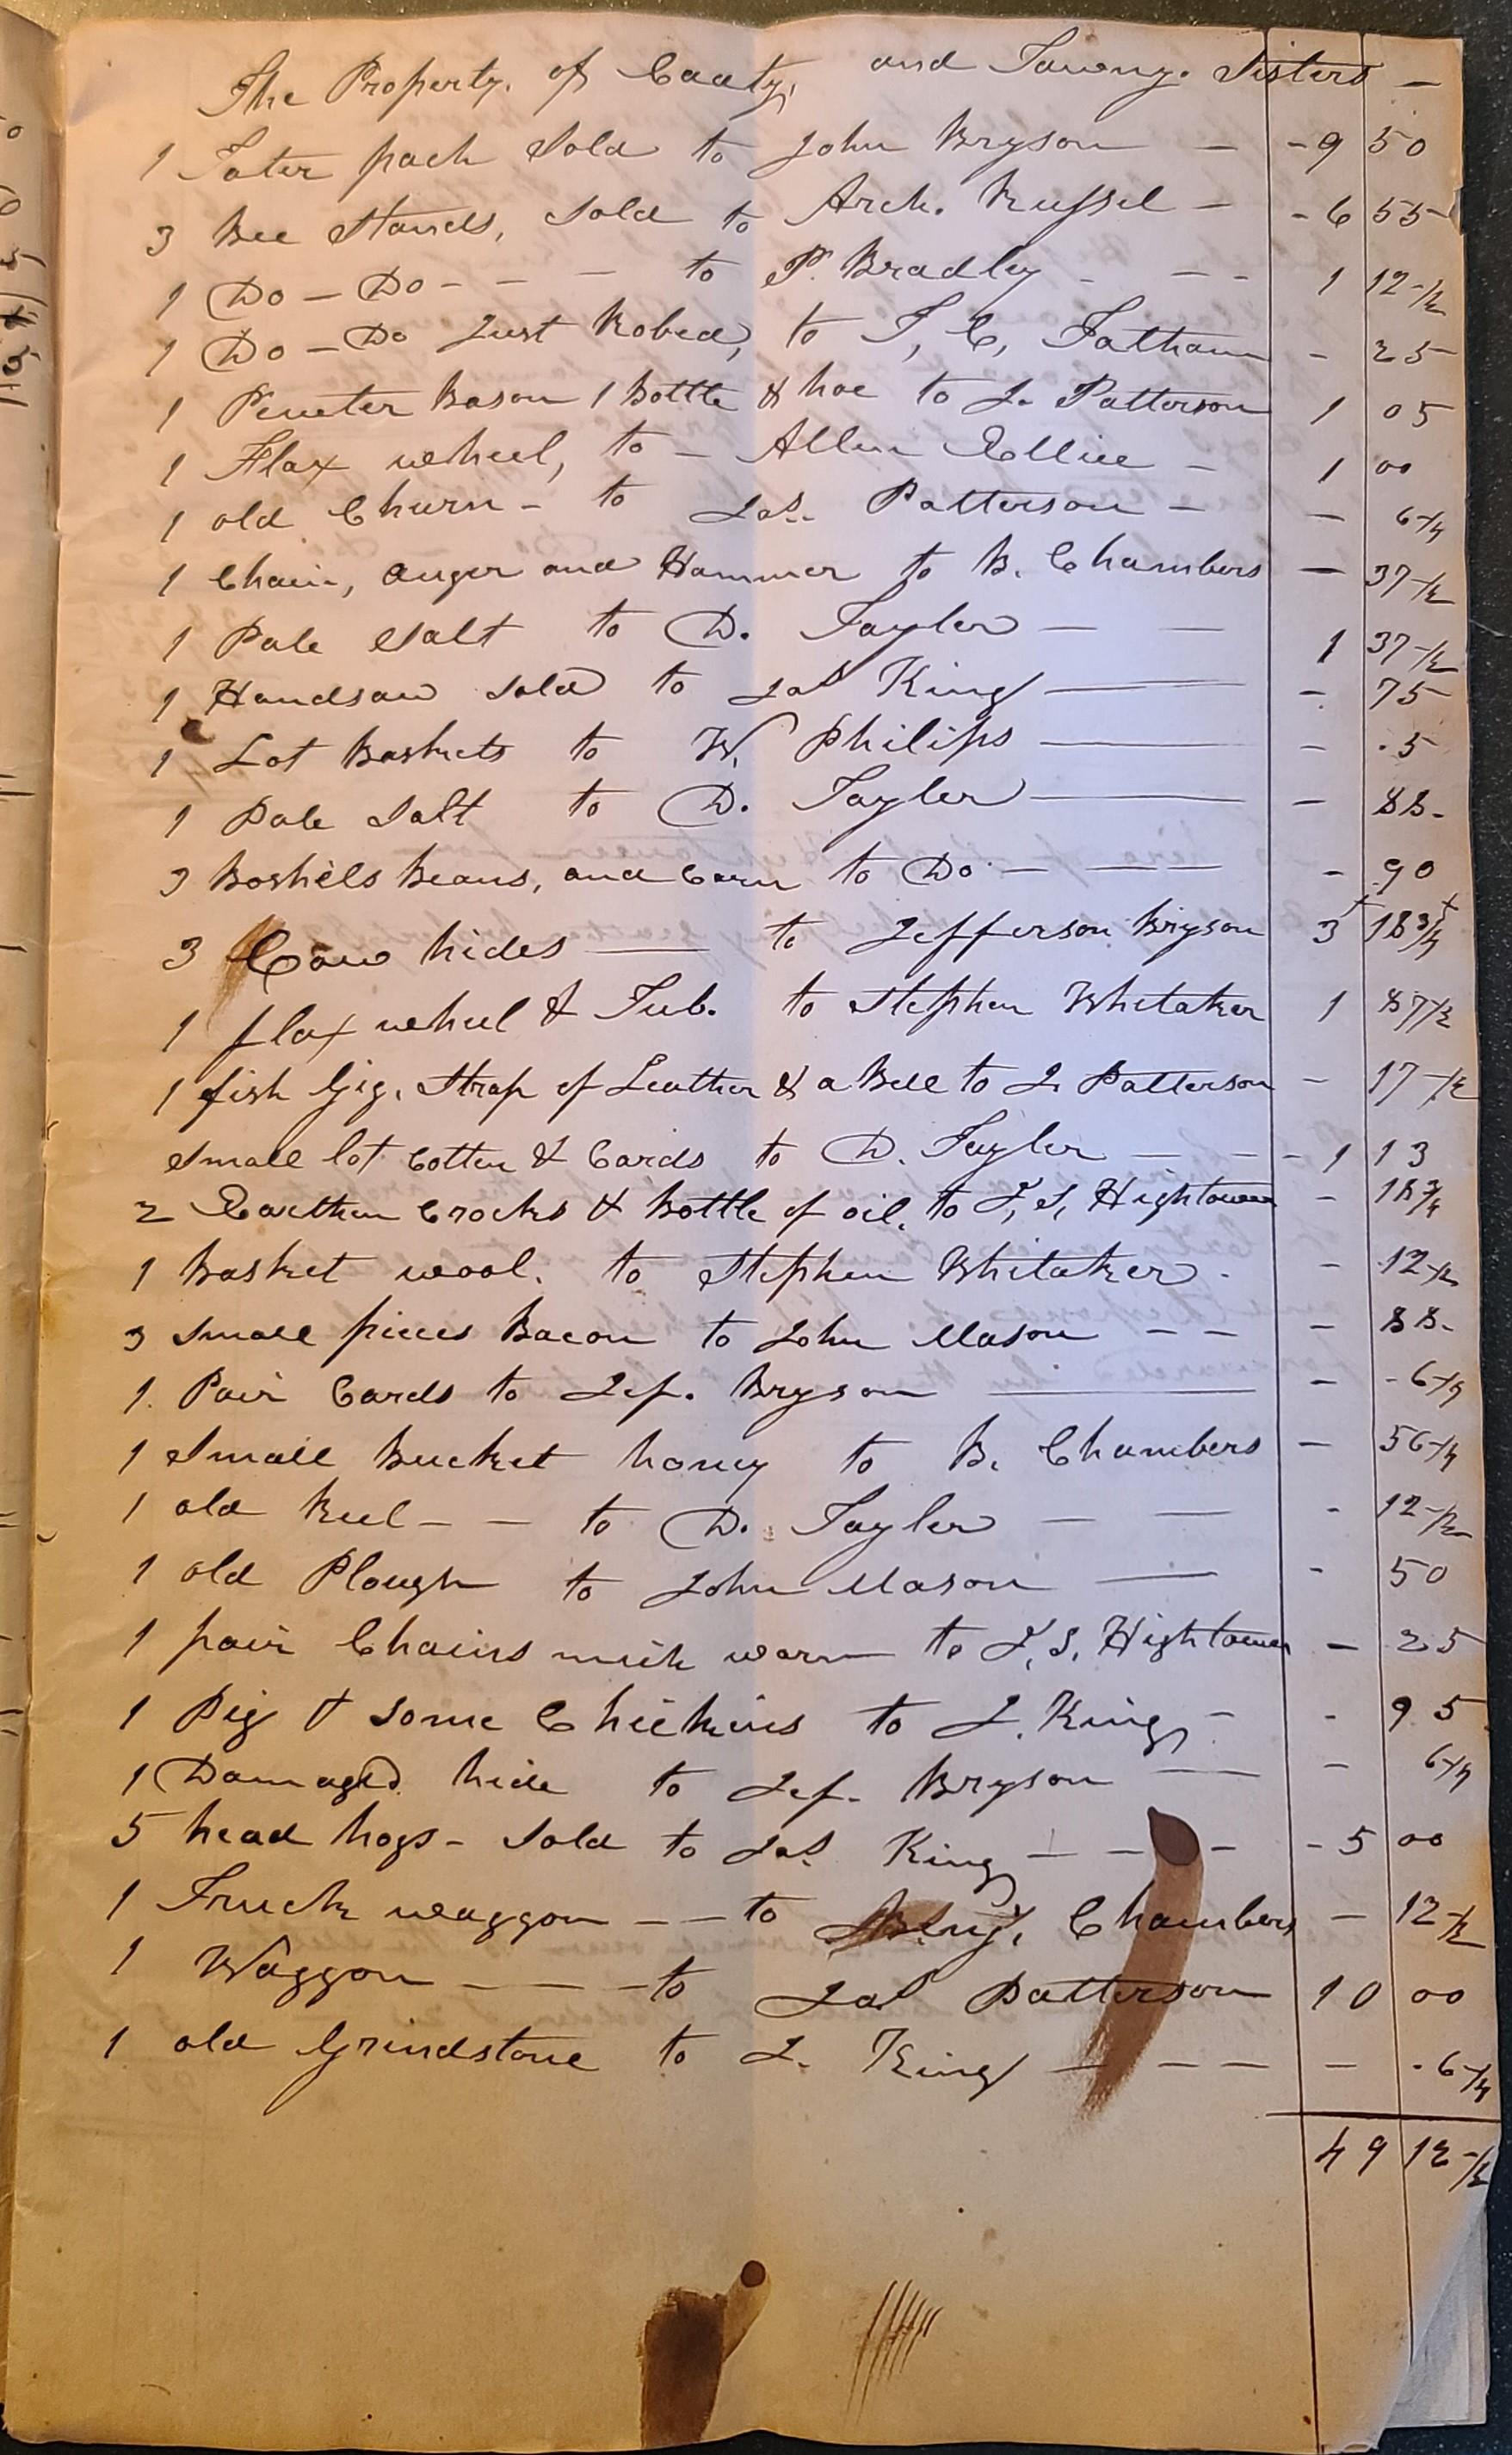 The Property. of Caaty, and Tawny. Sisters —
1 Tater pach Sold to John Bryson — - 9 50
3 Bee Stands, Sold to Arch. Russel — - 6 55
1 Do — Do - - - to P. Bradley - - - 1 12-1/2
1 Do — Do Just Robed, to T, C, Tatham - 25
1 Pewter Bason 1 Bottle & hoe to J. Patterson 1 05
1 Flax wheel, to — Allen Ellice — 1 00
1 old Churn - to Jas. Patterson — — 6-1/4
1 Chain, auger and Hammer to B. Chambers — 37-1/2
1 Pale Salt to D. Tayler — — 1 37-1/2
1 Handsaw Sold to Jas King — - 75
1 Lot Baskets to W. Philips — - . 5
1 Pale Salt to D. Tayler — — 88-
3 Boshels Beans, and Corn to Do — — - 90
3 Cow hides — to Jefferson Bryson 3 18 3/4
1 flax wheel & Tub. to Stephen Whitaker 1 87 1/2
1 fish Gig, Strap of Leather & a Bell to J. Patterson - 17-1/2
Small lot Cotten & Cards to D. Tayler — - - 1 13
2 Earthen Crocks & Bottle of oil. to J, S, Hightower - 18 3/4
1 Basket wool. to Stephen Whitaker. - 12-1/2
3 Small pieces Bacon to John Mason - - - 88-
1. Pair Cards to Jef. Bryson — - - 6-1/4
1 Small Bucket honey to B. Chambers — 56-1/4
1 old Reel - - to D. Tayler — — - 12-1/2
1 old Plough to John Mason — - 50
1 pair Chains much warn to J. S. Hightower - 25
1 Pig & Some Chickins to J. King - - 95
1 Damaged hide to Jef. Bryson — - 6-1/4
5 head hogs - Sold to Jas. King — - - - 5 00
1 Truck waggon — — to Benj. Chambers — 12-1/2
1 Waggon — — - to Jas Patterson 10 00
1 old Grindstone to J. King — — — - . 6-1/4
49 12-1/2